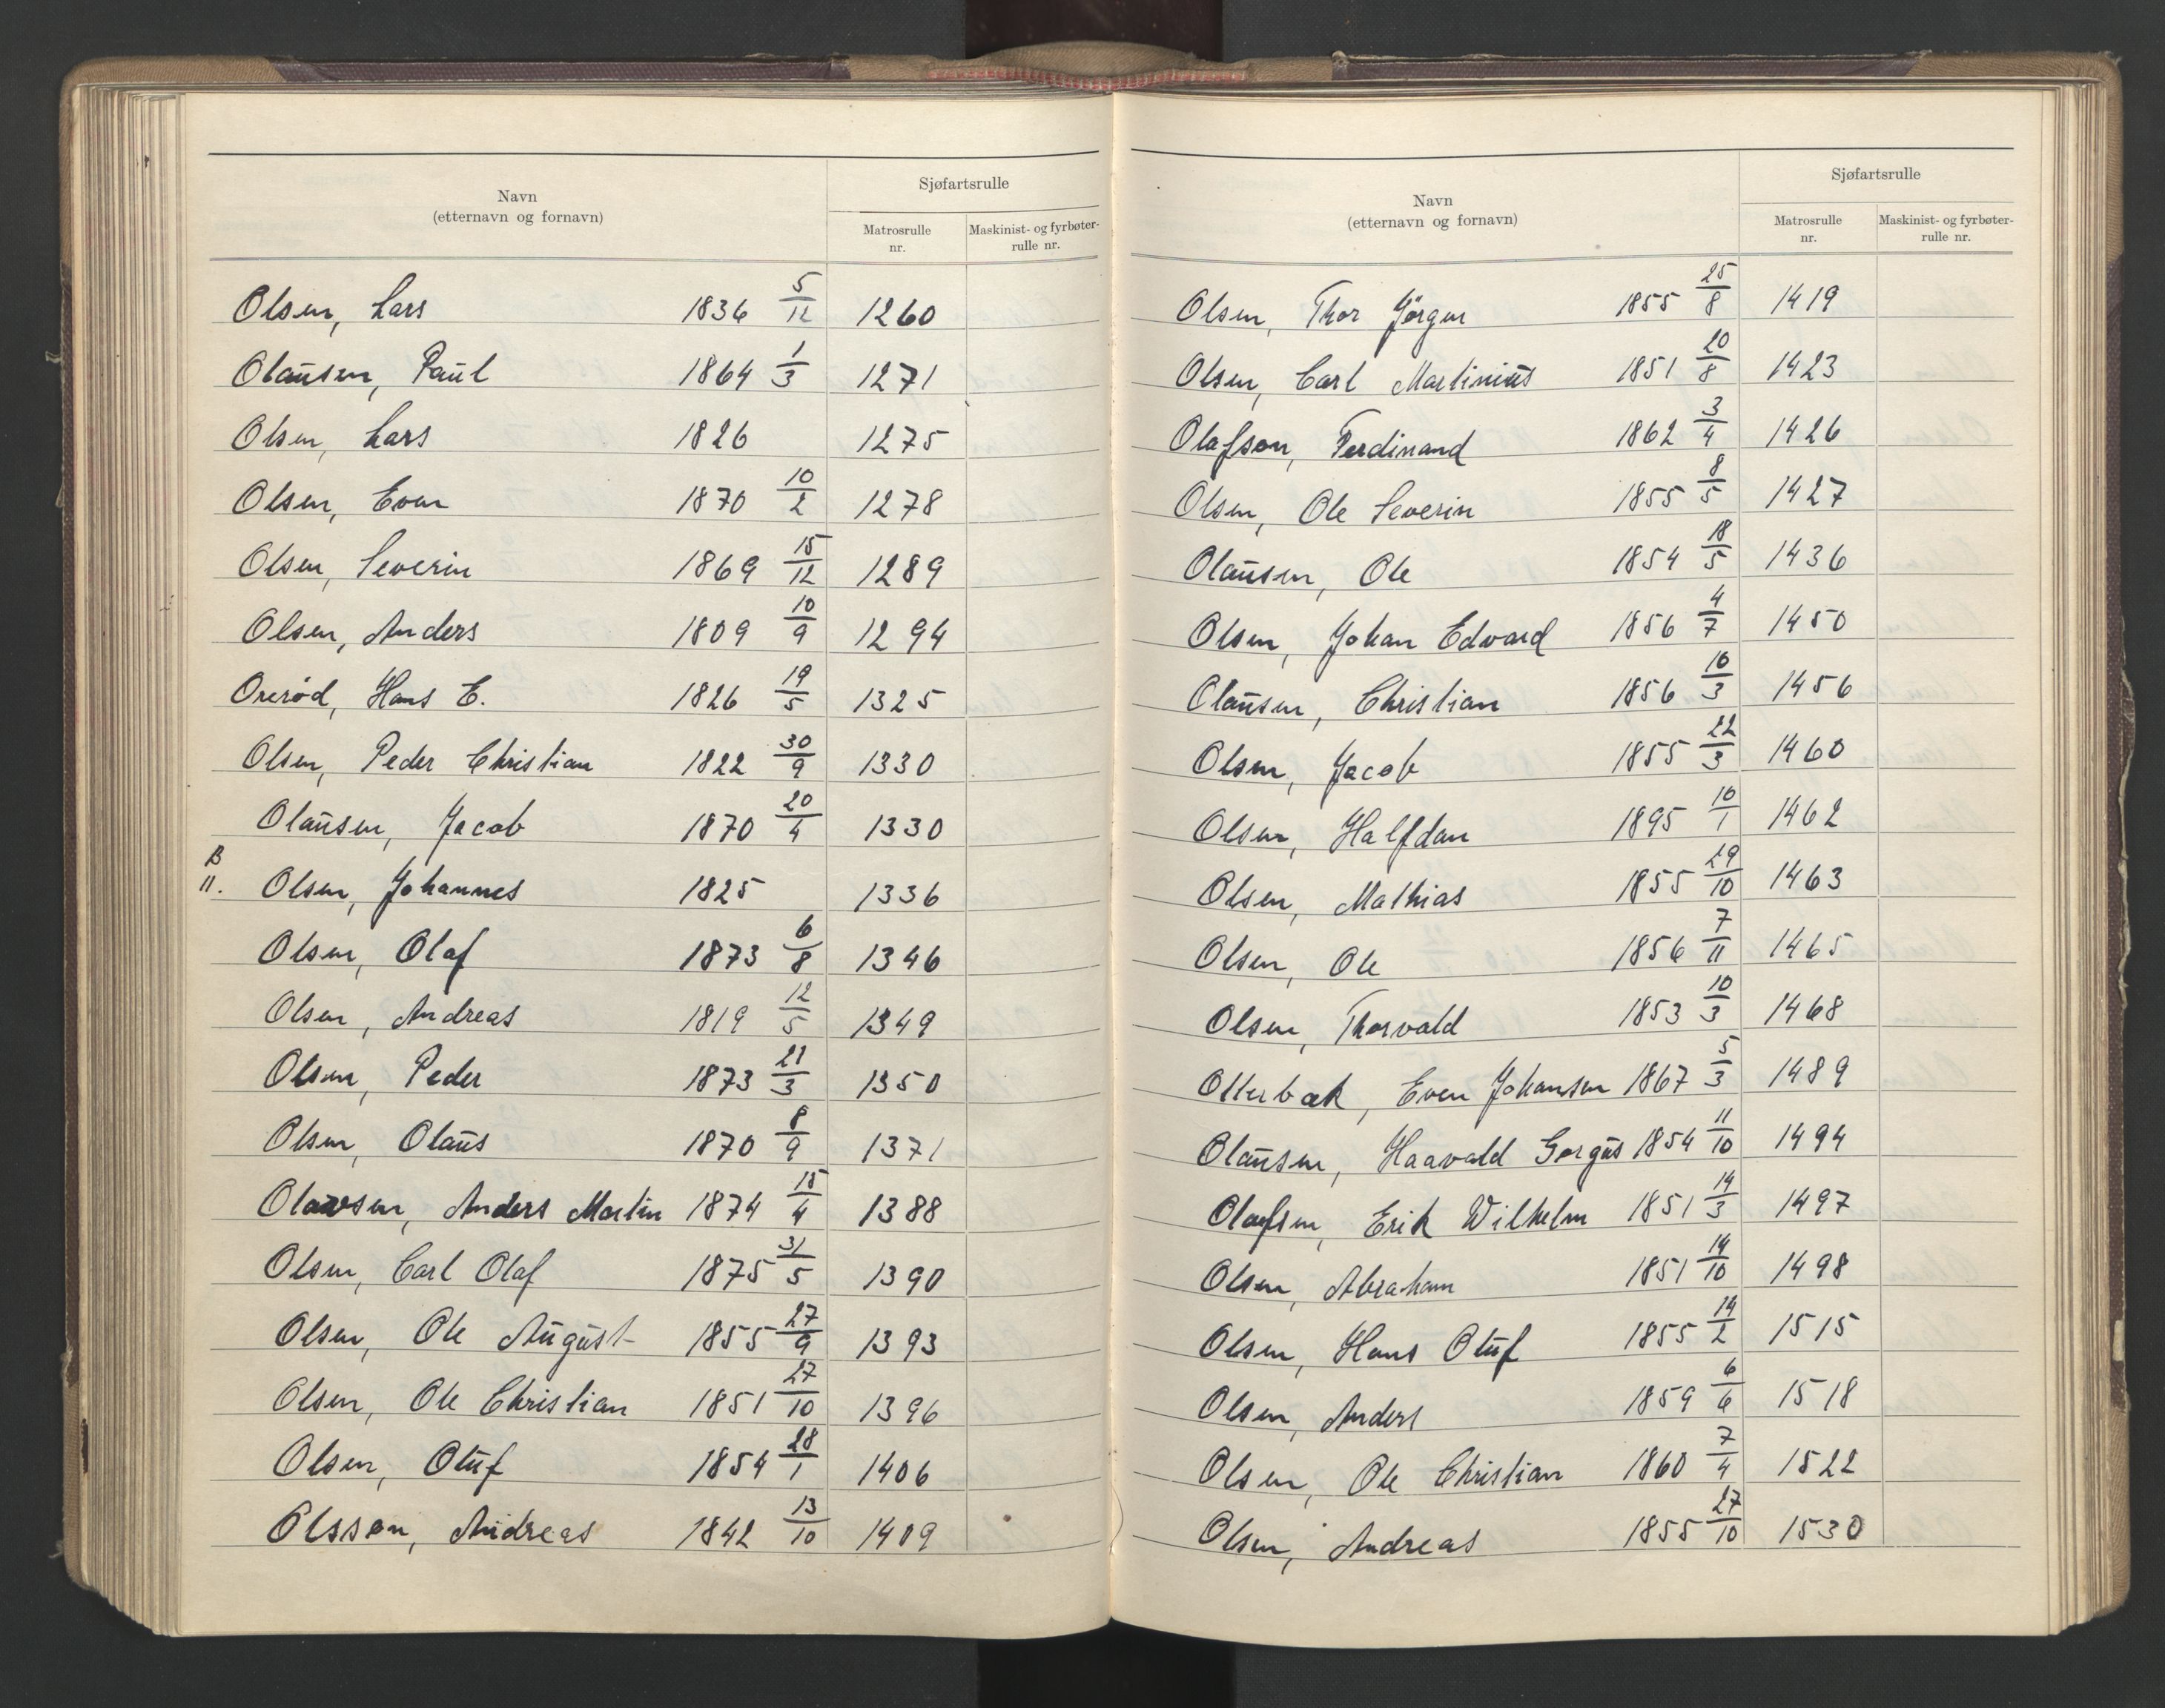 Navn
(etternavn og fornavn)
Sjøfartsrulle
Matrosrulle nr.
Maskinist- og fyrbøter-rulle nr.
Olsen, Lars 1836 5/12 1260
Olausen, Paul 1864 1/3 1271
Olsen, Lars 1826 1275
Olsen, Even 1870 10/2 1278
Olsen, Severin 1869 15/12 1289
Olsen, Anders 1809 10/9 1294
Orerød, Hans E. 1826 19/5 1325
Olsen, Peder Christian 1822 30/9 1330
Olausen, Jacob 1870 20/4 1330
B
11. Olsen, Johannes 1825 1336
Olsen, Olaf 1873 6/8 1346
Olsen, Andreas 1819 12/5 1349
Olsen, Peder 1873 21/3 1350
Olsen, Olaus 1870 8/9 1371
Olavsen, Anders Martin 1874 15/4 1388
Olsen, Carl Olaf 1875 31/5 1390
Olsen, Ole August 1855 27/9 1393
Olsen, Ole Christian 1851 27/10 1396
Olsen, Oluf 1854 28/1 1406
Olsson, Andreas 1842 13/10 1409
Navn
(etternavn og fornavn)
Sjøfartsrulle
Matrosrulle nr.
Maskinist- og fyrbøter-rulle nr.
Olsen, Thor Jørgen 1855 25/8 1419
Olsen, Carl Martinius 1851 20/8 1423
Olafson, Ferdinand 1862 3/4 1426
Olsen, Ole Severin 1855 8/5 1427
Olausen, Ole 1854 18/5 1436
Olsen, Johan Edvard 1856 4/7 1450
Olausen, Christian 1856 16/3 1456
Olsen, Jacob 1855 22/3 1460
Olsen, Halfdan 1895 10/1 1462
Olsen, Mathias 1855 29/10 1463
Olsen, Ole 1856 7/11 1465
Olsen, Thorvald 1853 10/3 1468
Otterbæk, Even Johansen 1867 5/3 1489
Olausen, Haavald Gorgus 1854 11/10 1494
Olafsen, Erik Wilhelm 1851 14/3 1497
Olsen, Abraham 1851 14/10 1498
Olsen, Hans Oluf 1855 14/2 1515
Olsen, Anders 1859 6/6 1518
Olsen, Ole Christian 1860 7/4 1522
Olsen, Andreas 1855 27/10 1530